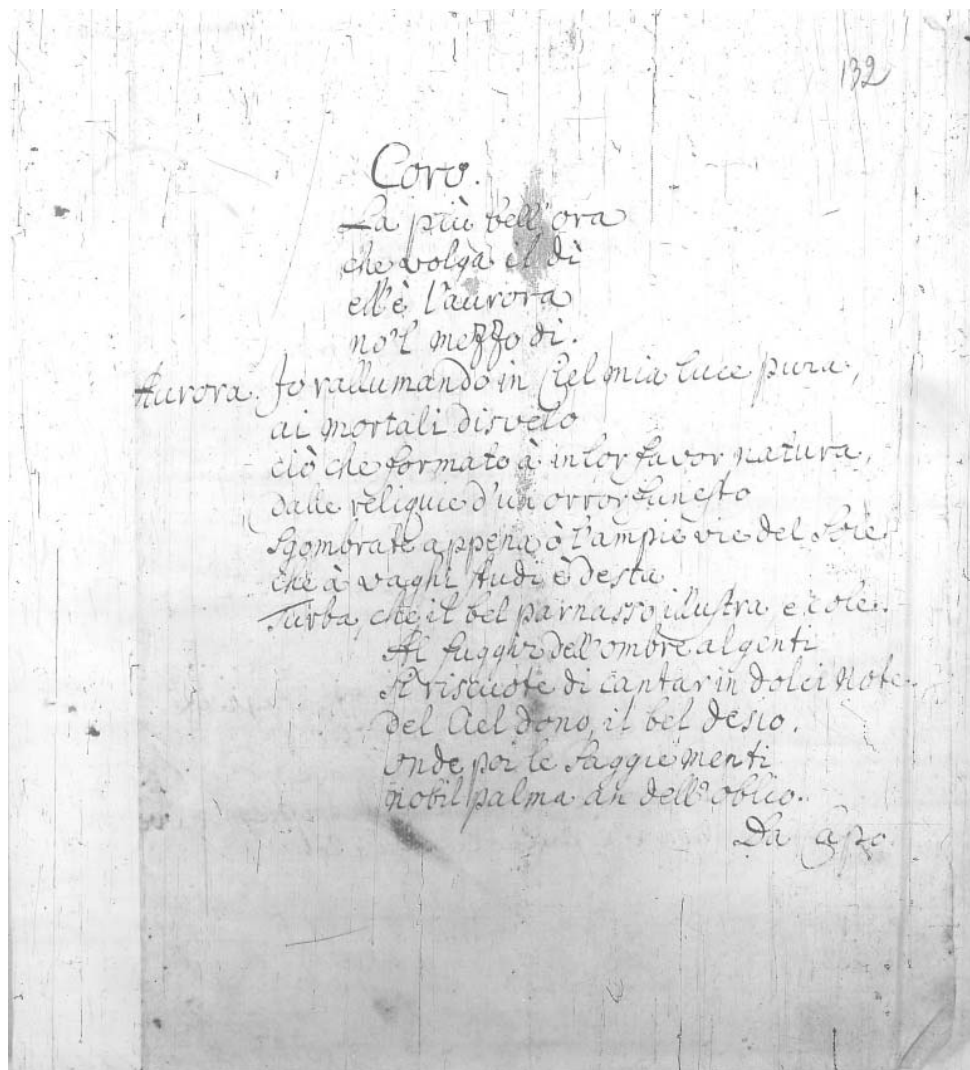 132
Coro.
La più bell'ora
che volga il dì
ell'è l'aurora
no'l mezzo dì.
Aurora. Io rallumando in Ciel mia luce pura,
ai mortali disvelo
ciò che formato à in lor favor natura,
dalle reliquie d'un orror funesto
Sgombrate appena ò l'ampie vie del Sole
che à vaghi studi è desta
Turba, che il bel parnasso illustra, e cole.
Al fuggir dell'ombre algenti
si riscuote di cantar in dolci Note
del Ciel dono, il bel desio.
onde poi le saggie menti
nobil palma àn dell'oblio.
Da Capo.